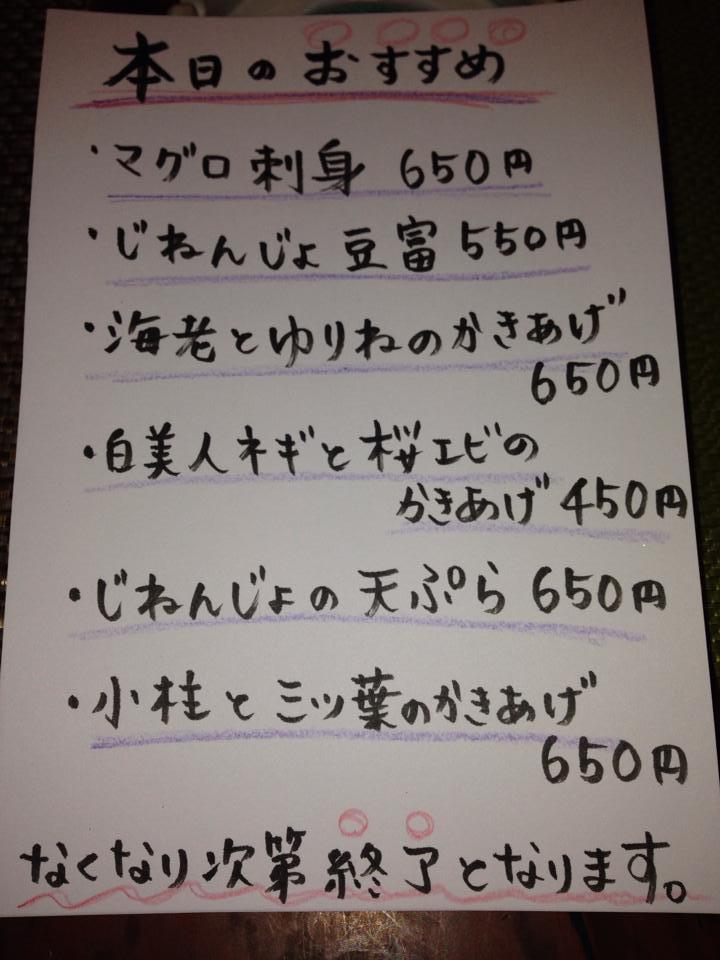 本日のおすすめ
・マグロ刺身 650円
・じねんじょ豆富 550円
・海老とゆりねのかきあげ
650円
・白美人ネギと桜エビの
かきあげ 450円
・じねんじょの天ぷら 650円
・小柱と三ツ葉のかきあげ
650円
なくなり次第終了となります。